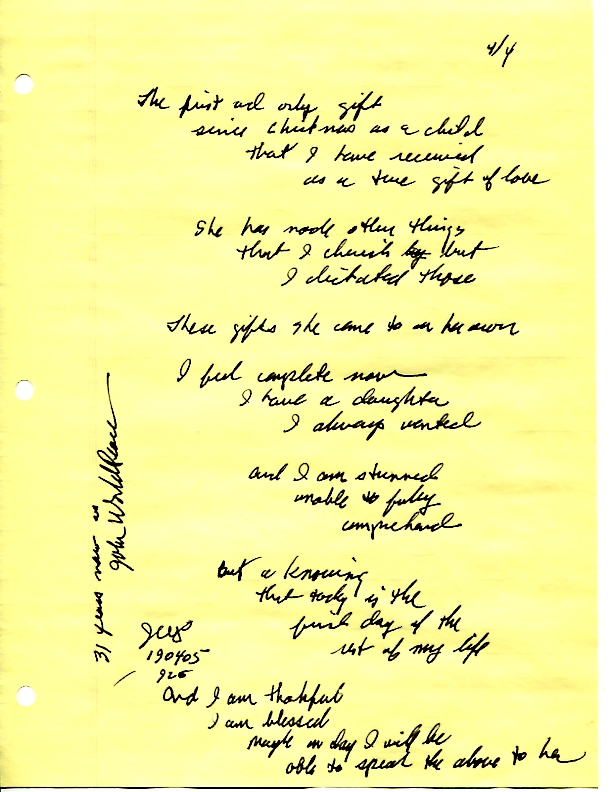 4/4
The first and only gift
since Christmas as a child
that I have received
as a true gift of love
She has made other things
that I cherish by but
I dictated those
These gifts she came to on her own
I feel complete now
I have a daughter
I always wanted
and I am stunned
unable to fully
comprehend
But a knowing
that today is the
first day of the
rest of my life
JWP
190405
925
And I am thankful
I am blessed
maybe on day I will be
able to speak the above to her
31 years now as
John WorldPeace